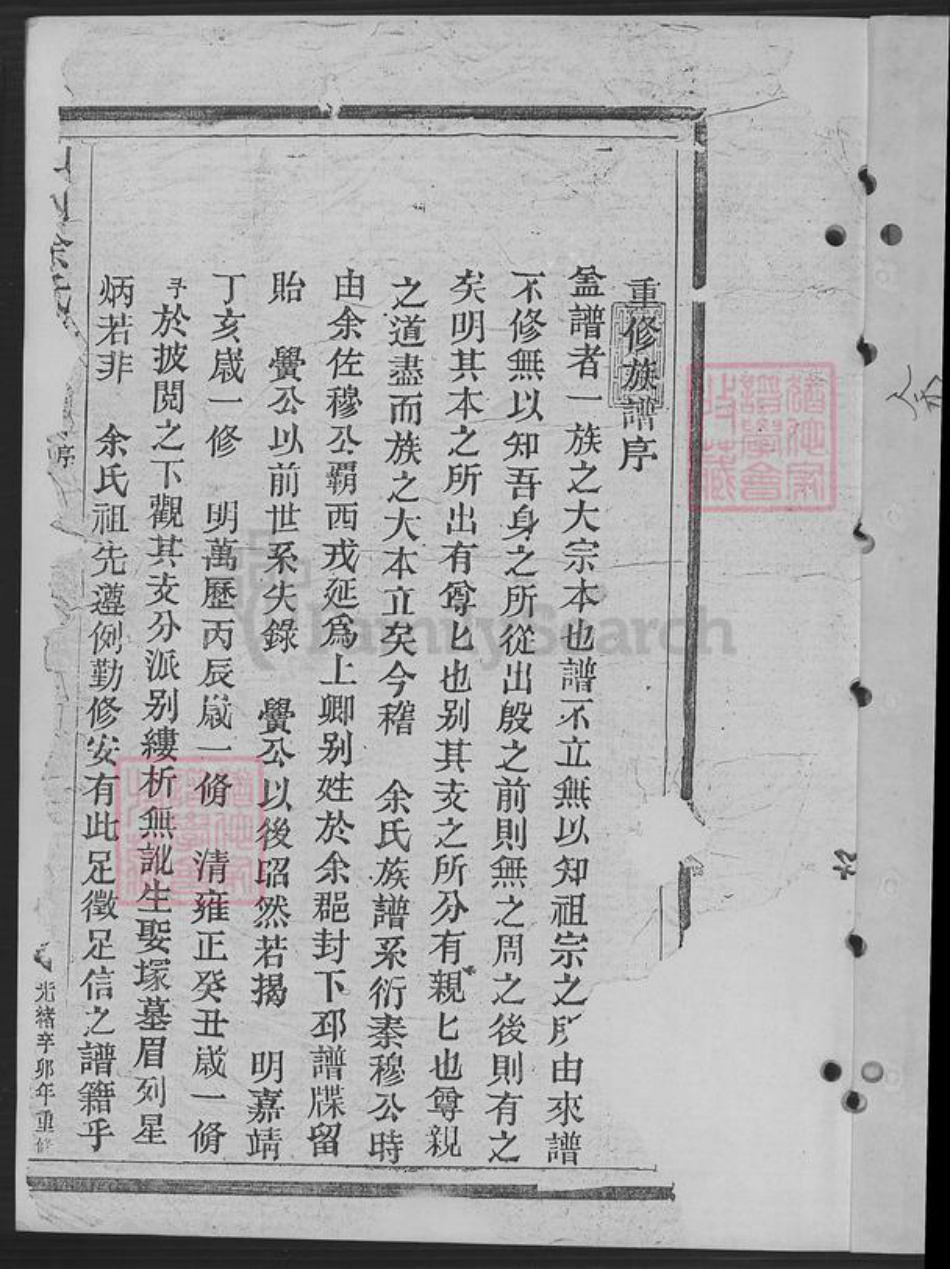 重修族譜序
盖譜者一族之大宗本也譜不立無以知祖宗之所由來譜
不修無以知吾身之所從出殷之前則無之周之後則有之
矣明其本之所出有尊匕也别其支之所分有親匕也尊親
之道盡而族之大本立矣今稽 余氏族譜系衍秦穆公時
由余佐穆公霸西戎延爲上卿别姓於余郡封下邳譜牒留
貽 黌公以前世系失錄 黌公以後昭然若揭 明嘉靖
丁亥歲一修 明萬歷丙辰歲一脩 清雍正癸丑歲一脩
予於披閲之下觀其支分派别縷析無訛生娶塚墓眉列星
炳若非 余氏祖先遵例勤修安有此足徵足信之譜籍乎
余氏
序
光緒辛卯年重修
FamilySearch